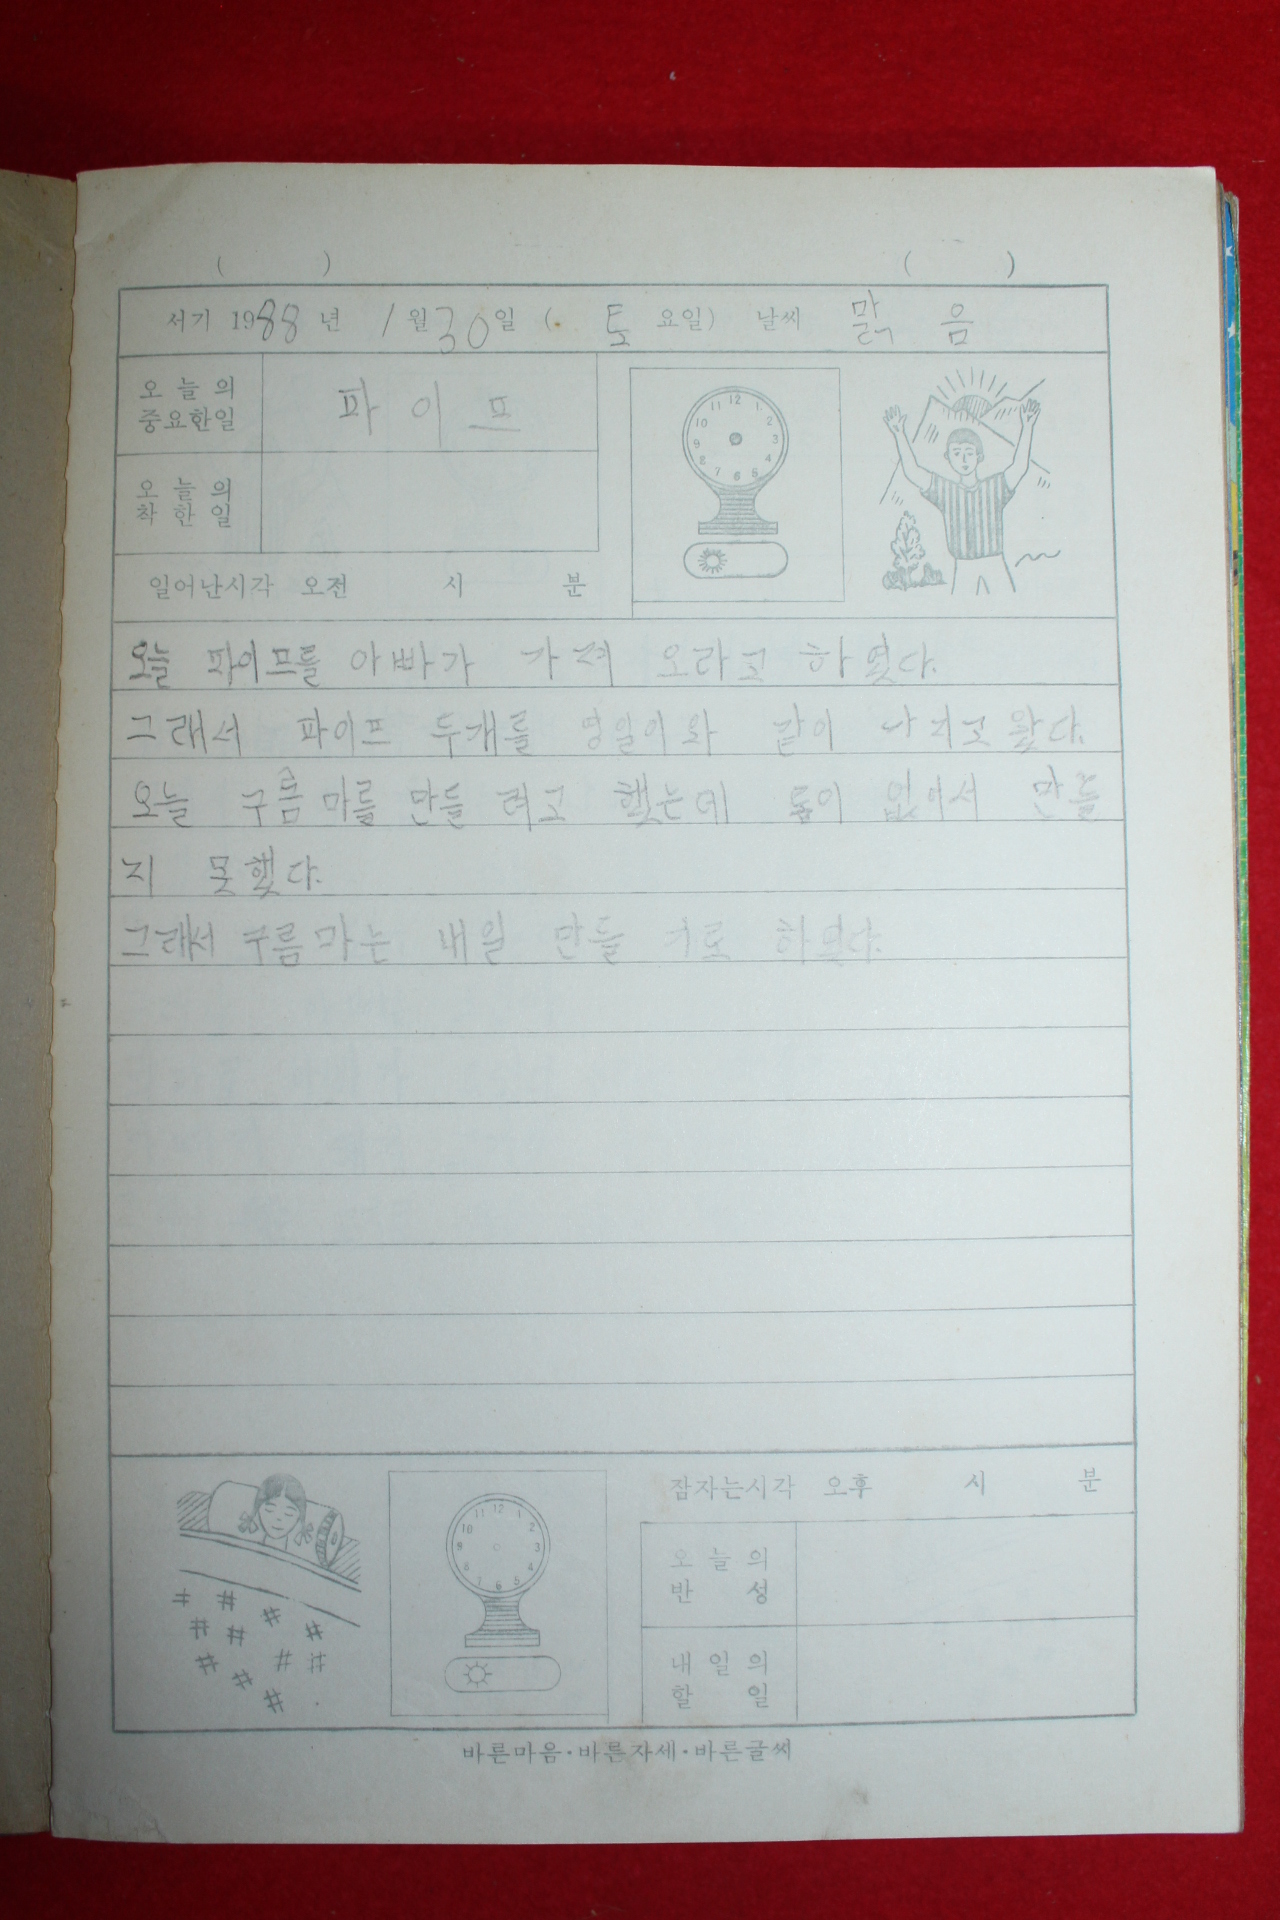 ( ) ( )
서기 1988년 1월 30일 (토요일) 날씨 맑음
오늘의 중요한일 파이프
오늘의 착한일
일어난시각 오전 시 분
오늘 파이프를 아빠가 가져 오라고 하였다.
그래서 파이프 두개를 영일이와 같이 가지고 왔다.
오늘 구름마를 만들 려고 했는데 통이 없어서 만들
지 못했다.
그래서 구름마는 내일 만들 기로 하였다.
잠자는시각 오후 시 분
오늘의 반성
내일의 할일
바른마음·바른자세·바른글씨